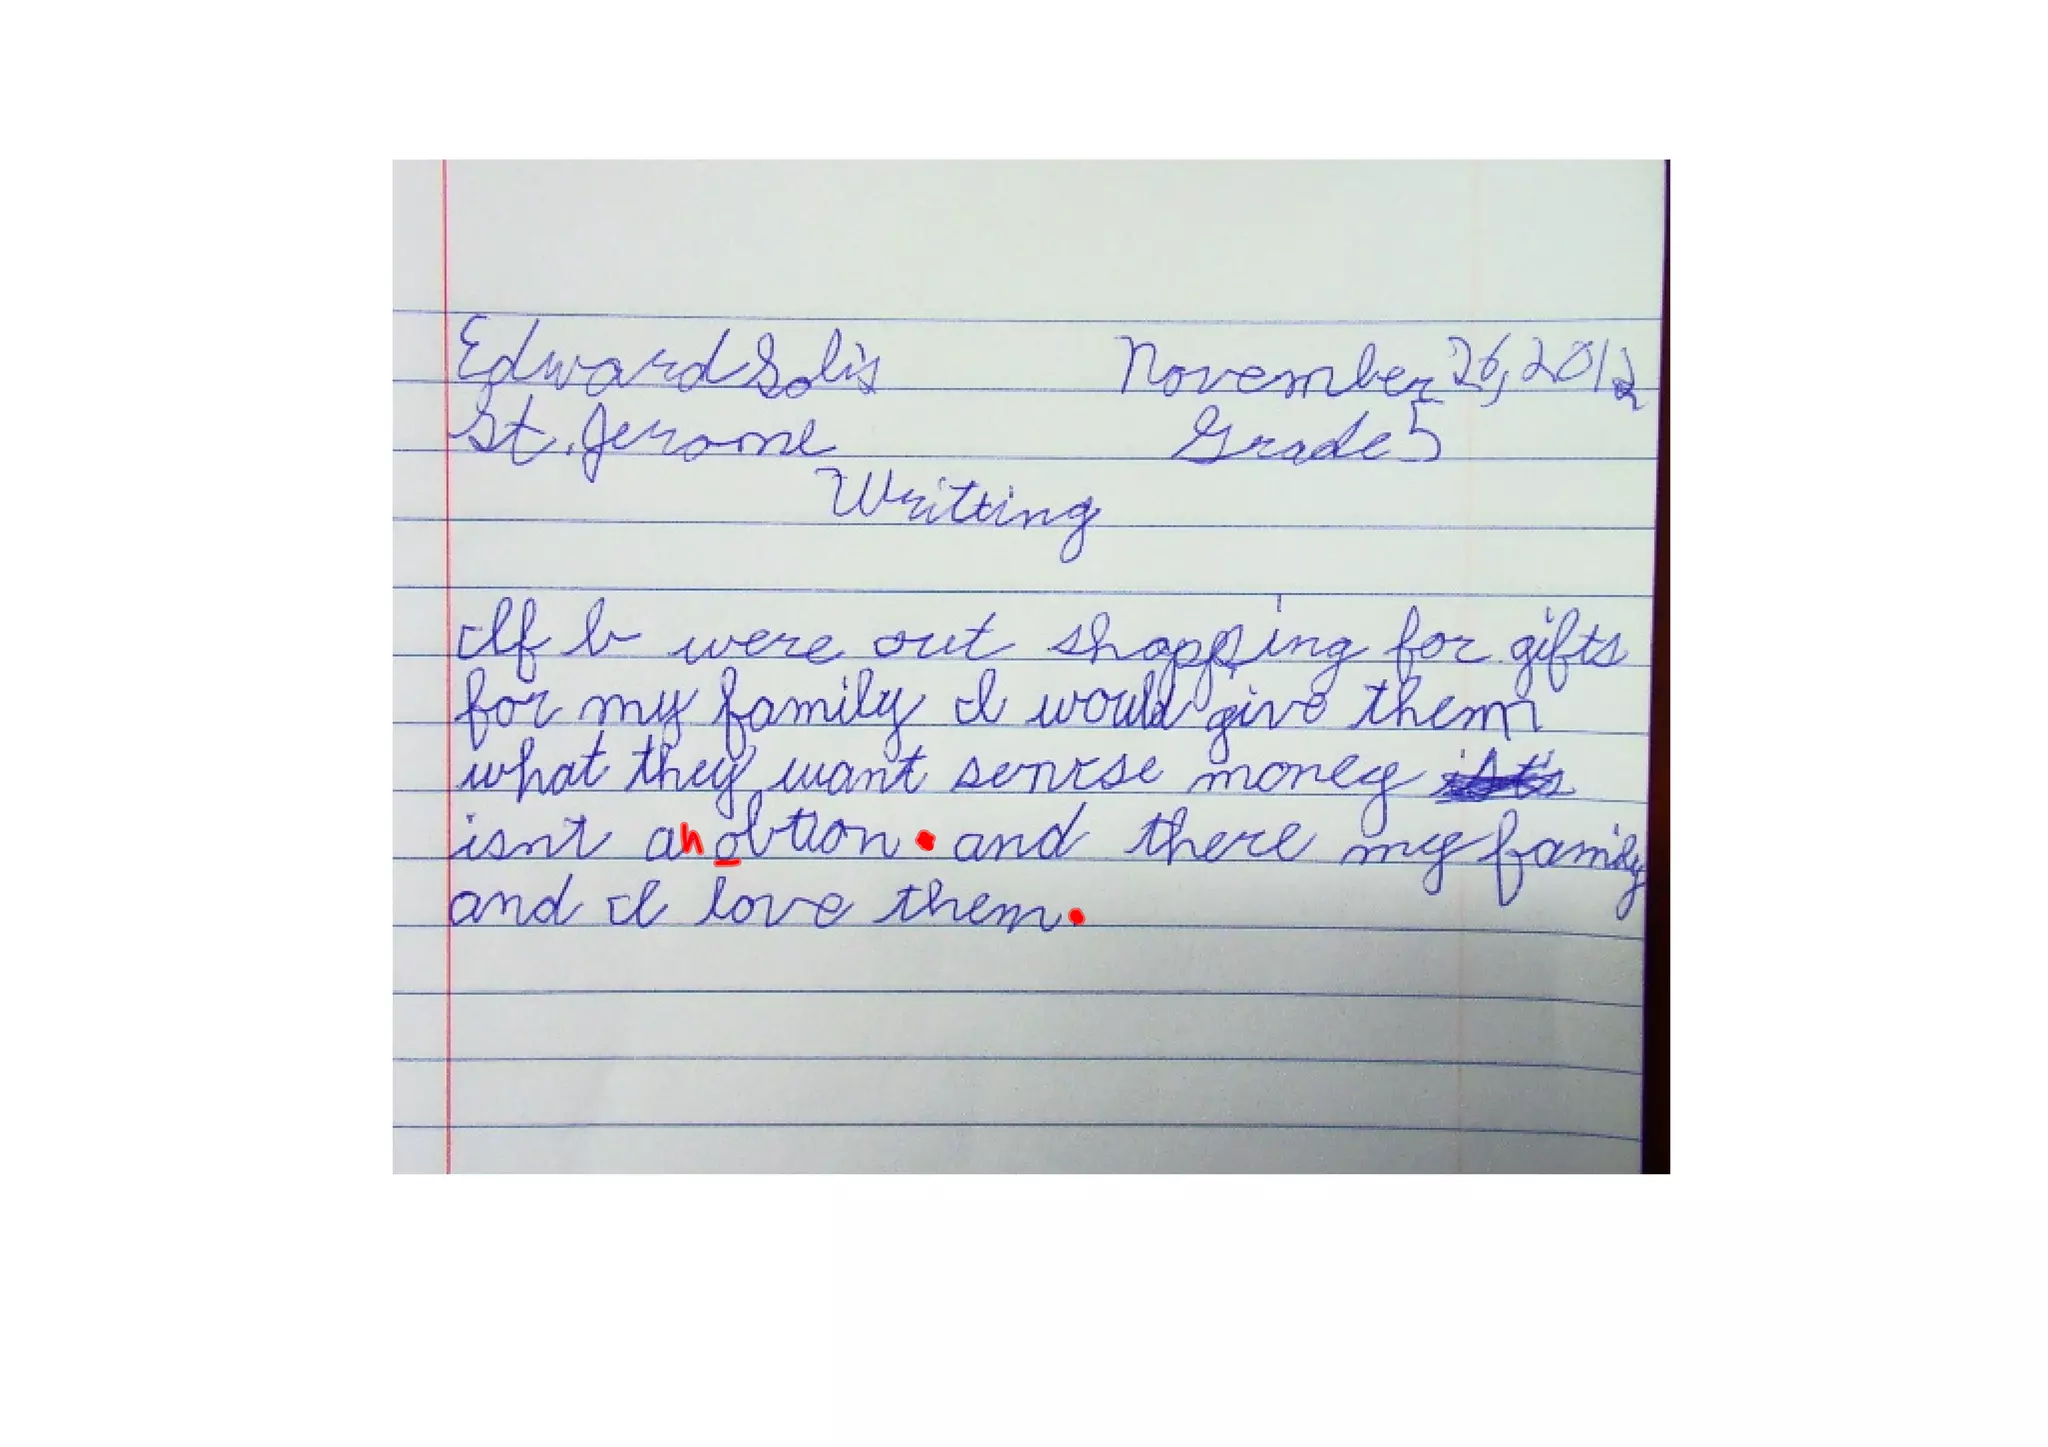 Edward Solis November 26, 2012
St. Jerome Grade 5
Writting
If b were out shopping for gifts
for my family I would give them
what they want sense money
isnt an obtion. and there my family
and I love them.